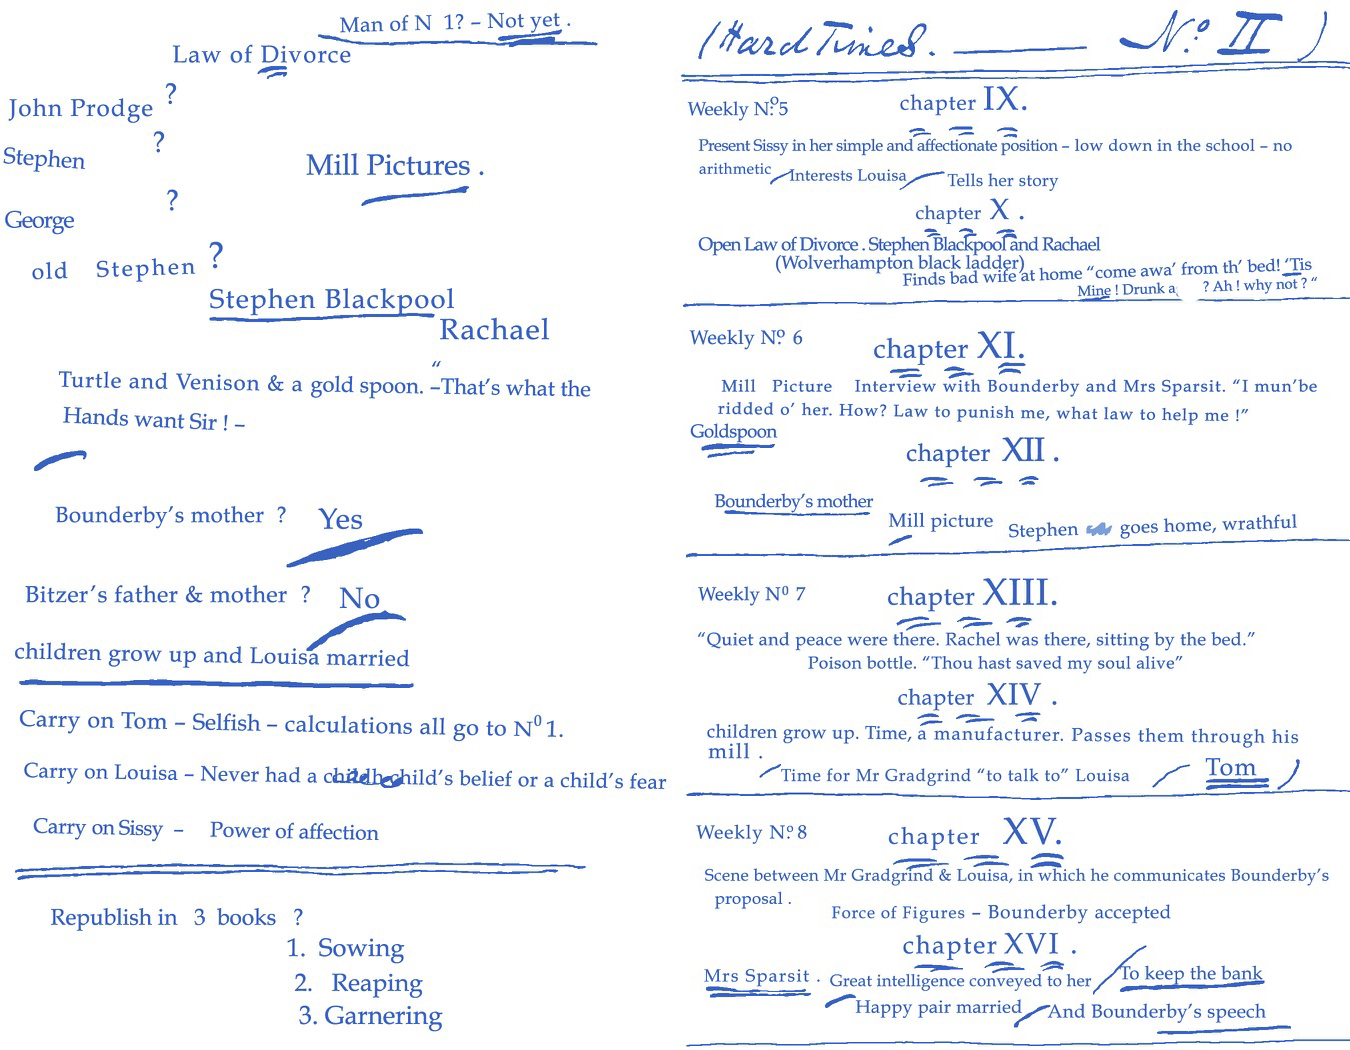 Man of N 1? – Not yet .
Law of Divorce
John Prodge ?
Stephen ?
Mill Pictures .
George ?
old Stephen ?
Stephen Blackpool
Rachael
Turtle and Venison & a gold spoon. – “That’s what the
Hands want Sir ! –
Bounderby’s mother ? Yes
Bitzer’s father & mother ? No
children grow up and Louisa married
Carry on Tom – Selfish – calculations all go to Nº 1.
Carry on Louisa – Never had a child’s belief or a child’s fear
Carry on Sissy – Power of affection
Republish in 3 books ?
1. Sowing
2. Reaping
3. Garnering
(Hard Times. Nº. II )
Weekly Nº. 5 chapter IX.
Present Sissy in her simple and affectionate position – low down in the school – no
arithmetic Interests Louisa Tells her story
chapter X .
Open Law of Divorce . Stephen Blackpool and Rachael
(Wolverhampton black ladder)
Finds bad wife at home “come awa’ from th’ bed! ‘Tis
Mine ! Drunk a ? Ah ! why not ? “
Weekly Nº. 6 chapter XI.
Mill Picture Interview with Bounderby and Mrs Sparsit. “I mun’be
ridded o’ her. How? Law to punish me, what law to help me !”
Goldspoon
chapter XII .
Bounderby’s mother
Mill picture Stephen goes home, wrathful
Weekly Nº 7 chapter XIII.
“Quiet and peace were there. Rachel was there, sitting by the bed.”
Poison bottle. “Thou hast saved my soul alive”
chapter XIV .
children grow up. Time, a manufacturer. Passes them through his
mill .
Time for Mr Gradgrind “to talk to” Louisa Tom )
Weekly Nº. 8 chapter XV.
Scene between Mr Gradgrind & Louisa, in which he communicates Bounderby’s
proposal .
Force of Figures – Bounderby accepted
chapter XVI .
Mrs Sparsit . Great intelligence conveyed to her To keep the bank
Happy pair married And Bounderby’s speech